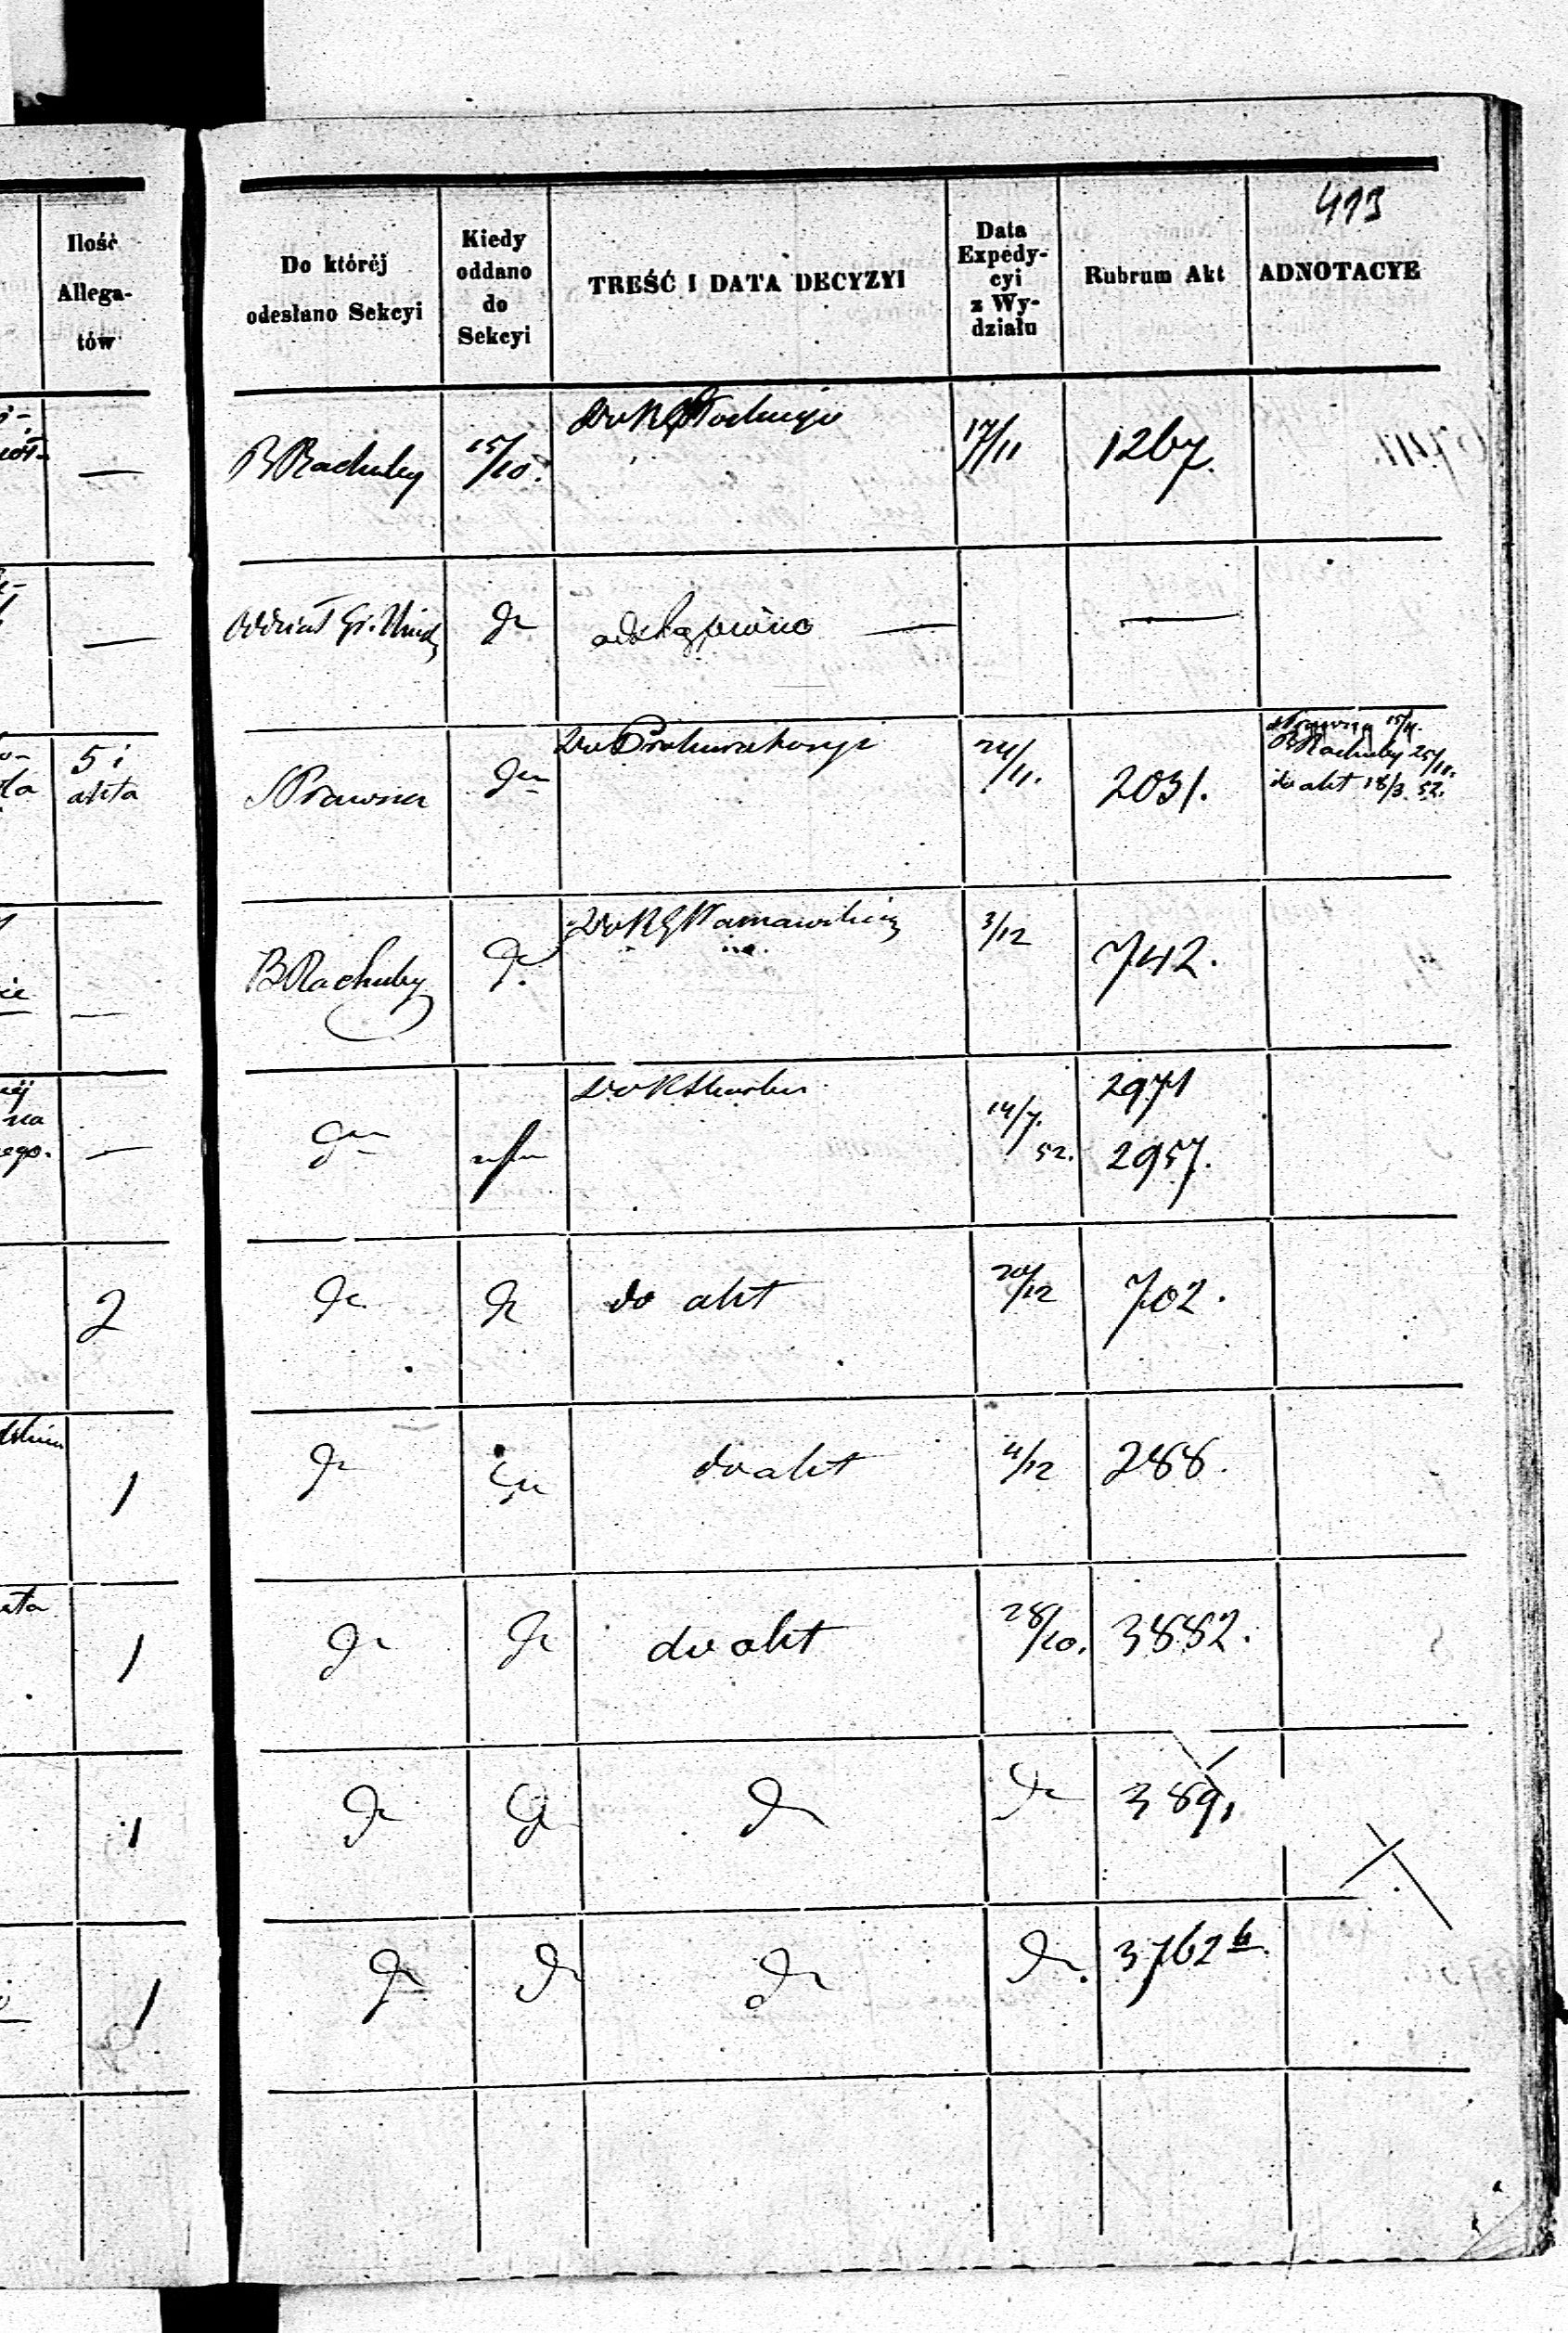 413
Ilość
Allega-
tów
Do któréj
odesłano Sekcyi
Kiedy
oddano
do
Sekcyi
TREŚĆ I DATA DECYZYI
Data
Expedy-
cyi
z Wy-
działu
Rubrum Akt
ADNOTACYE
—
B Rachuby
15/10.
Do RG
17/11
1267.
—
Oddział
do
—
—
5 i
akta
S Prawna
dto
Do Prokuratoryi
24/11.
2031.
Prawna 15/11.
B Rachuby 25/11.
do akt 18/3 52.
—
B Rachuby
do
Do RG Warszawskiego
3/12
742.
—
dto
Do R Skarbu
14/7.
52.
2971
2957.
2
do
do
do akt
20/12
702.
1
do
do
do akt
4/12
288.
1
do
do
do akt
28/10.
3882.
1
do
do
do
do
389
1
do
do
do
do.
3762 b.